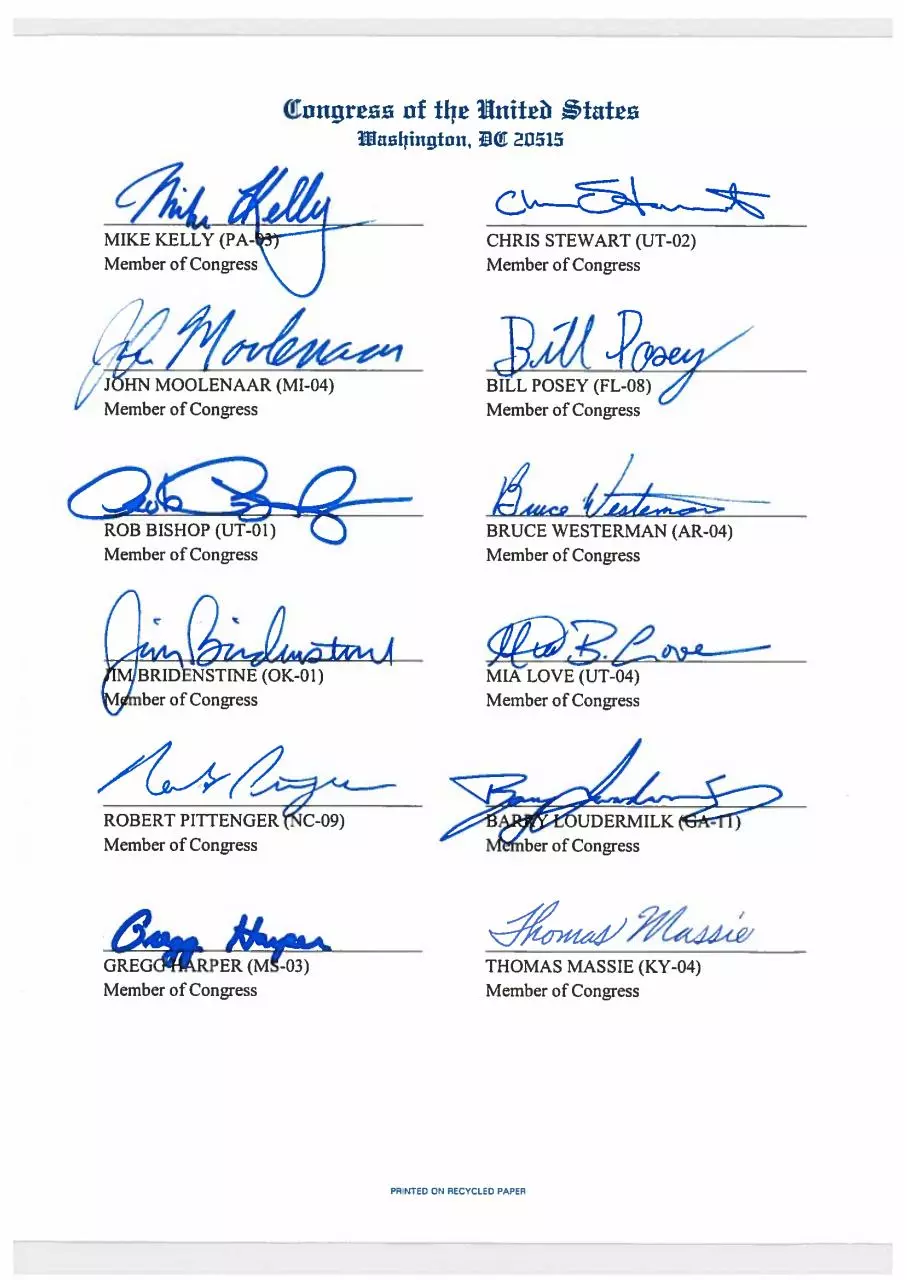 Congress of the United States
Washington, DC 20515
Mike Kelly
Chris Stewart
MIKE KELLY (PA-03)
CHRIS STEWART (UT-02)
Member of Congress
Member of Congress
John Moolenaar
Bill Posey
JOHN MOOLENAAR (MI-04)
BILL POSEY (FL-08)
Member of Congress
Member of Congress
Rob Bishop
Bruce Westerman
ROB BISHOP (UT-01)
BRUCE WESTERMAN (AR-04)
Member of Congress
Member of Congress
Jim Bridenstine
Mia B. Love
JIM BRIDENSTINE (OK-01)
MIA LOVE (UT-04)
Member of Congress
Member of Congress
Robert Pittenger
Barry Loudermilk
ROBERT PITTENGER (NC-09)
BARRY LOUDERMILK (GA-11)
Member of Congress
Member of Congress
Gregg Harper
Thomas Massie
GREGG HARPER (MS-03)
THOMAS MASSIE (KY-04)
Member of Congress
Member of Congress
PRINTED ON RECYCLED PAPER